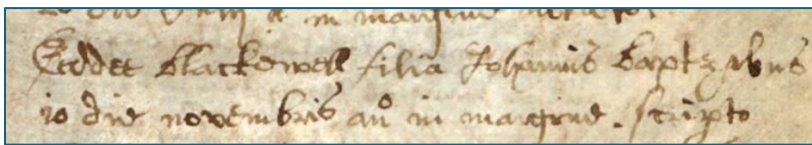 die in margine
Eeddet Blackewell filia Johannis Baptzabus
10 die novembris ano in margine. scripto